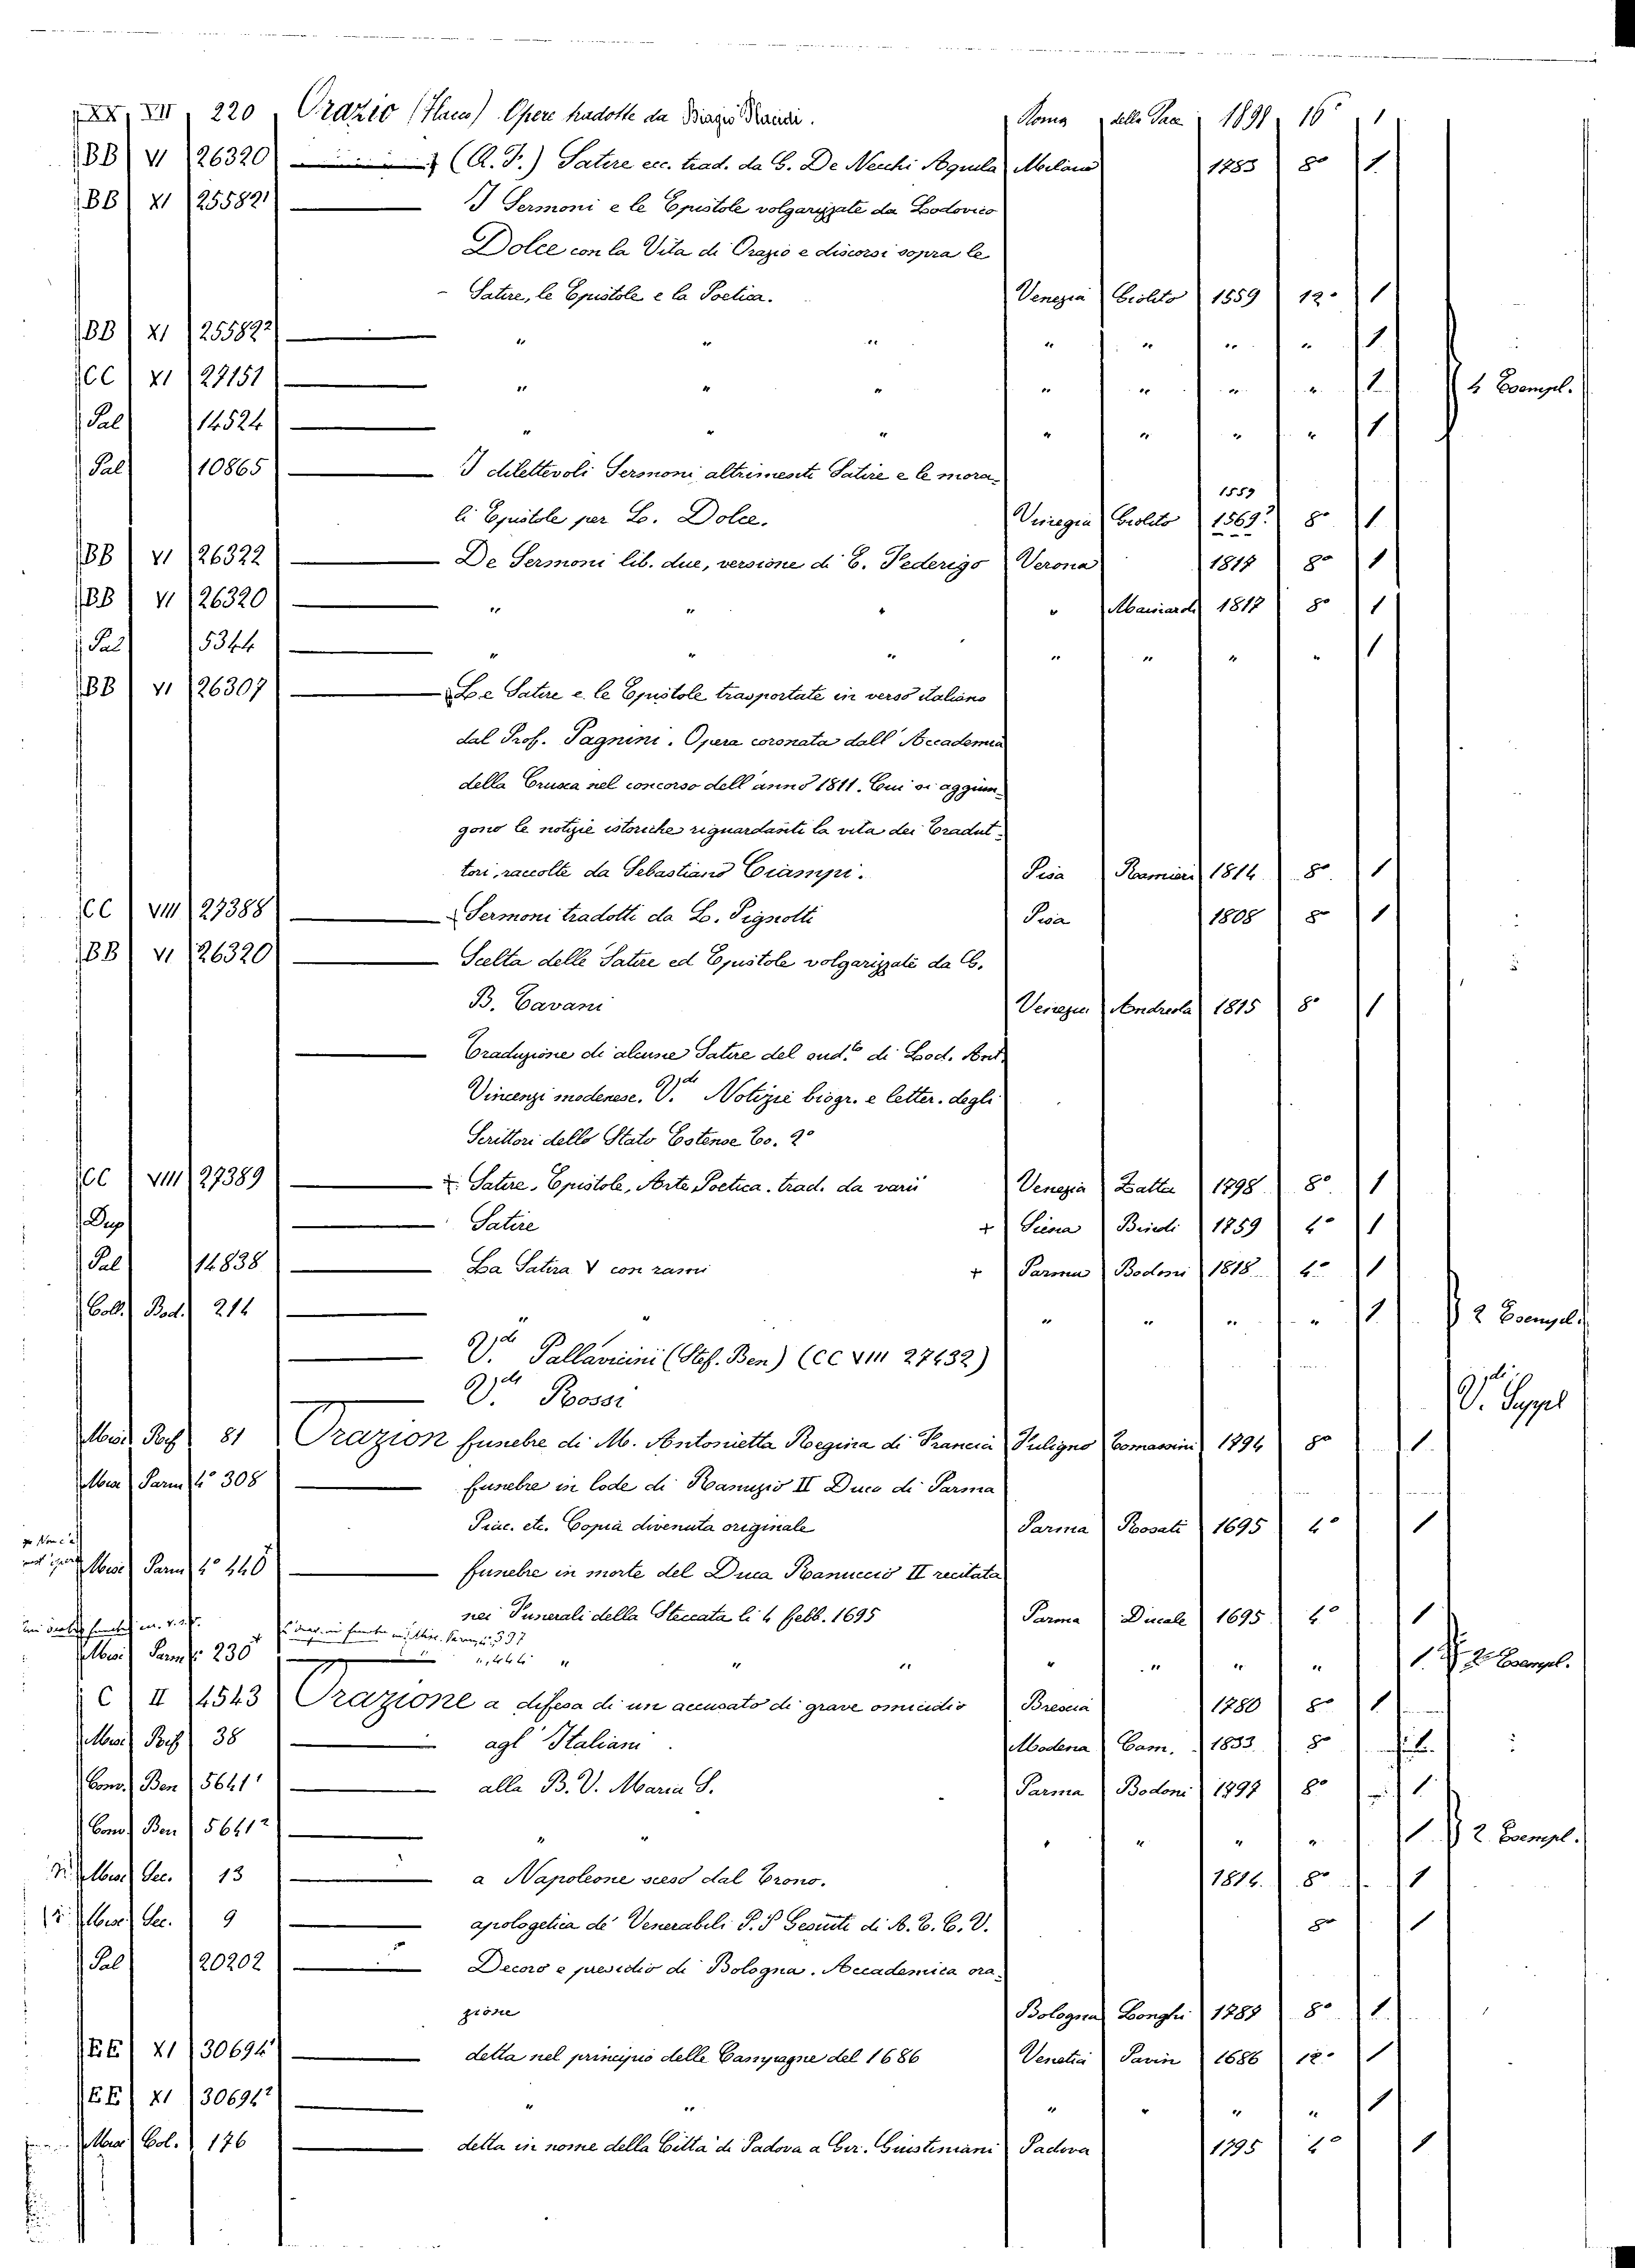 XX VII 220 Orazio (Flacco) Opere tradotte da Biagio Placidi. Roma della Pace 16° 1
BB VI 26320 (Q. F.) Satire ecc. trad. da G. De Necchi Aquila Milano 1783 8° 1
BB XI 25589¹ I Sermoni e le Epistole volgarizzate da Lodovico
Dolce con la Vita di Orazio e discorsi sopra le
Satire, le Epistole e la Poetica. Venezia Giolito 1559 12° 1
BB XI 25589² " " " " " " " 1
CC XI 27151 " " " " " " " 1 4 Esempl.
Pal 14524 " " " " " " " 1
Pal 10865 I dilettevoli Sermoni altrimenti Satire e le mora-
1559
li Epistole per L. Dolce. Vinegia Giolito 1569? 8° 1
BB VI 26322 De Sermoni lib. due, versione di G. Federigo Verona 1817 8° 1
BB VI 26320 " " " " Mainardi 1817 8° 1
Pal 5344 " " " " " " " 1
BB VI 26307 Le Satire e le Epistole trasportate in verso italiano
dal Prof. Pagnini. Opera coronata dall' Accademia
della Crusca nel concorso dell'anno 1811. Cui si aggiun-
gono le notizie istoriche riguardanti la vita dei Tradut-
tori, raccolte da Sebastiano Ciampi. Pisa Ranieri 1814 8° 1
CC VIII 27388 Sermoni tradotti da L. Pignotti Pisa 1808 8° 1
BB VI 26320 Scelta delle Satire ed Epistole volgarizzate da G.
B. Cavani Venezia Andreola 1815 8° 1
Traduzione di alcune Satire del sud.to di Lod. Ant.
Vincenzi modenese. V.di Notizie biogr. e letter. degli
Scrittori dello Stato Estense To. 2°
CC VIII 27389 Satire, Epistole, Arte Poetica, trad. da varii Venezia Zatta 1798 8° 1
Dup Satire + Siena Bindi 1759 4° 1
Pal 14838 La Satira V con rami + Parma Bodoni 1818 4° 1
Coll. Bod. 214 " " " " " " 1 2 Esempl.
V.di Pallavicini (Stef. Ben) (CC VIII 27432)
V.di Rossi V.di Suppl
Misc. 81 Orazion funebre di M. Antonietta Regina di Francia Fuligno Tomassini 1794 8° 1
Misc Parm 4° 308 funebre in lode di Ranuzio II Duca di Parma
Piac. etc. Copia divenuta originale Parma Rosati 1695 4° 1
Misc Parm 4° 440 funebre in morte del Duca Ranuccio II recitata
nei Funerali della Steccata li 4 febb. 1695 Parma Ducale 1695 4° 1
Misc Parm 4° 230 " " " " " " " 1 2 Esempl.
C II 4543 Orazione a difesa di un accusato di grave omicidio Brescia 1780 8° 1
Misc 38 agl' Italiani Modena Cam. 1833 8° 1
Conv. Ben 5641¹ alla B. V. Maria S. Parma Bodoni 1797 8° 1
Conv. Ben 5641² " " " " " " 1 2 Esempl.
Misc Sec. 13 a Napoleone sceso dal Trono. 1814 8° 1
Misc Sec. 9 apologetica de' Venerabili P. P Gesuiti di A. T. C. V. 8° 1
Pal 20202 Decoro e presidio di Bologna. Accademica ora-
zione Bologna Longhi 1789 8° 1
EE XI 30694¹ detta nel principio delle Campagne del 1686 Venetia Pavin 1686 12° 1
EE XI 30694² " " " " " " 1
Misc Col. 176 detta in nome della Città di Padova a Gir. Giustiniani Padova 1795 4° 1